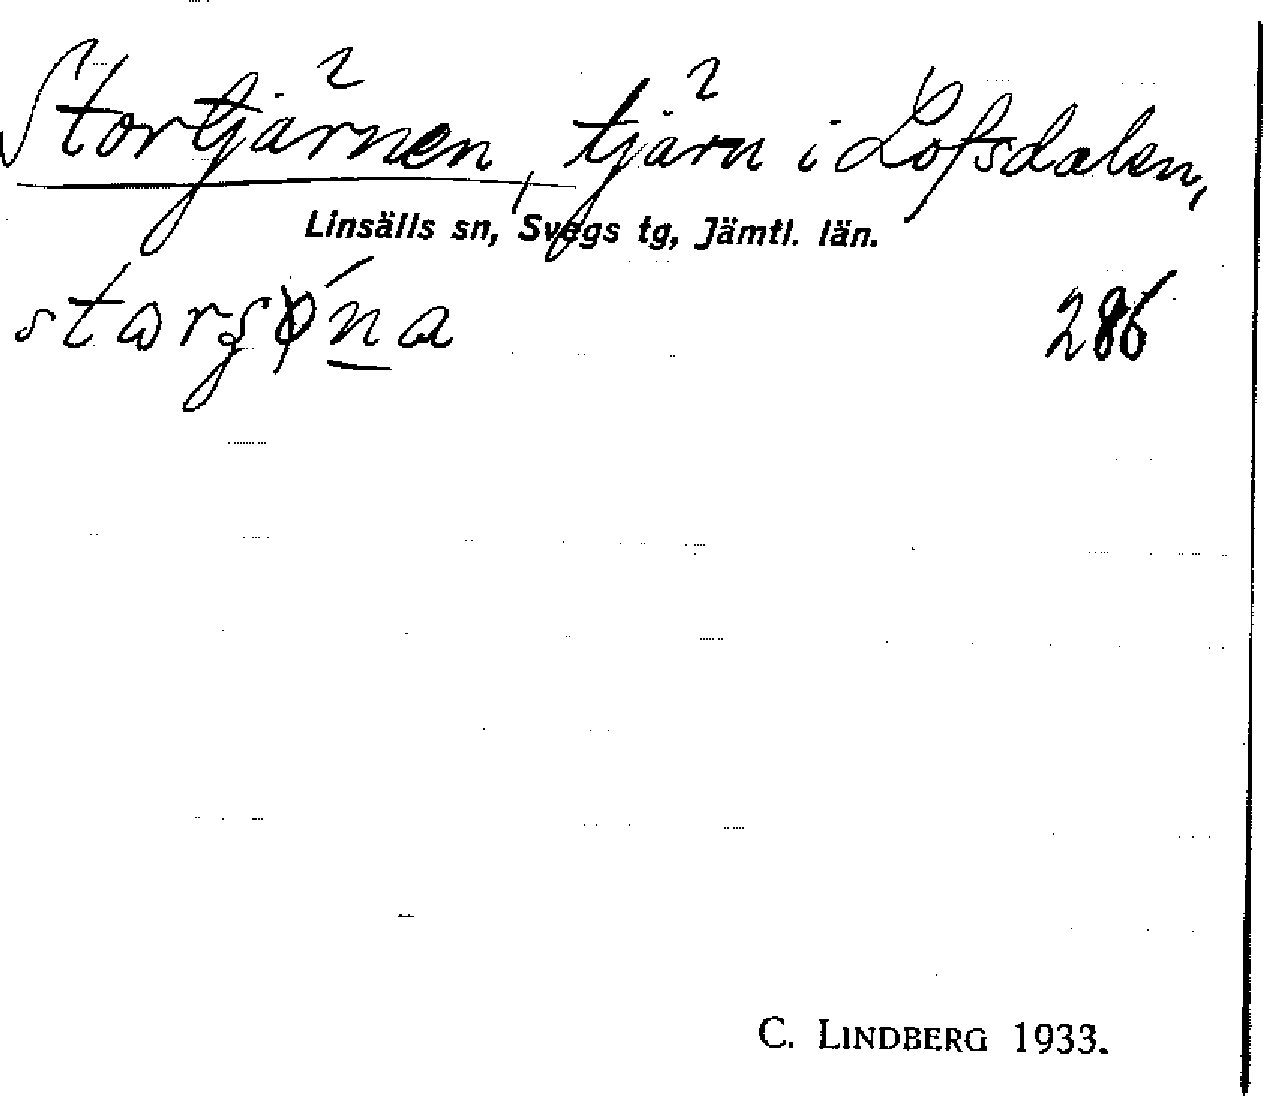 Stortjärnen, tjärn i Lofsdalen,
Linsälls sn, Svegs tg, Jämtl. län.
286
C. LINDBERG 1933.